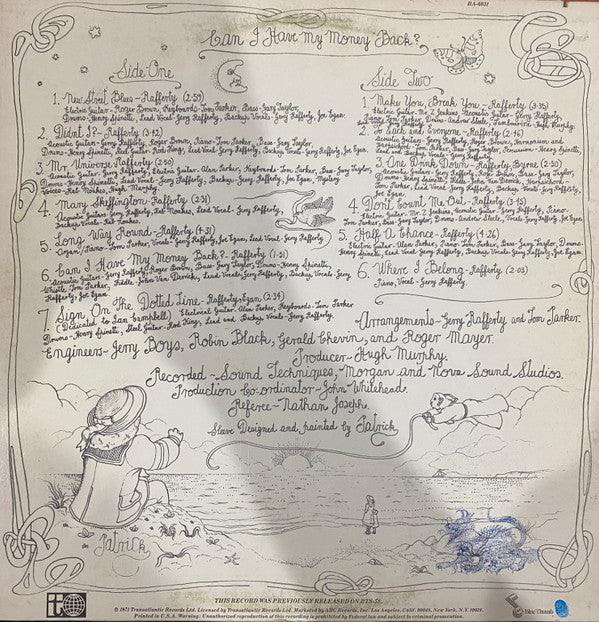 BA-6031
Can I Have My Money Back?
Side One
1. New Street Blues - Rafferty (2-59)
Electric Guitar - Roger Brown, Keyboards - Tom Parker, Bass - Gary Taylor,
Drums - Henry Spinetti, Lead Vocal - Gerry Rafferty, Backup Vocals - Gerry Rafferty, Joe Egan.
2. Didn't I? - Rafferty (3-42)
Acoustic Guitar - Gerry Rafferty, Roger Brown, Piano - Tom Parker, Bass - Gary Taylor,
Drums - Henry Spinetti, Steel Guitar - Rod King, Lead Vocal - Gerry Rafferty, Backup Vocals - Gerry Rafferty, Joe Egan.
3. Mr. Universe - Rafferty (2-50)
Acoustic Guitar - Gerry Rafferty, Electric Guitar - Alan Parker, Keyboards - Tom Parker, Bass - Gary Taylor,
Drums - Henry Spinetti, Lead Vocal - Gerry Rafferty, Backup - Gerry Rafferty, Joe Egan, Mystery
Voices - Rab Noakes, Hugh Murphy.
4. Mary Skeffington - Rafferty (2-31)
Acoustic Guitars - Gerry Rafferty, Rab Noakes, Lead Vocal - Gerry Rafferty,
Backup Vocals - Rab Noakes.
5. Long Way Round - Rafferty (4-31)
Organ/Piano - Tom Parker, Vocals - Gerry Rafferty, Joe Egan, Lead Vocal - Gerry Rafferty
6. Can I Have My Money Back? - Rafferty (1-51)
Acoustic Guitars - Gerry Rafferty, Roger Brown, Bass - Gary Taylor, Drums - Henry Spinetti,
Whistle, Tom Parker, Fiddle - John Van Derrick, Lead Vocals - Gerry Rafferty, Backup Vocals - Gerry
Rafferty, Joe Egan.
7. Sign On The Dotted Line - Rafferty/Egan (2-39)
(Dedicated to Ian Campbell) Electrical Guitar - Alan Parker, Keyboards - Tom Parker
Drums - Henry Spinetti, Steel Guitar - Rod King, Lead and Backup Vocals - Gerry Rafferty, Joe Egan.
Side Two
1. Make You, Break You - Rafferty (3-35)
Electric Guitar - Mr. Z Jenkins, Acoustic Guitar - Gerry Rafferty,
Piano - Tom Parker, Drums - Andrew Steele, Tambourine - Hugh Murphy.
2. To Each and Everyone - Rafferty (2-46)
Acoustic Guitar - Gerry Rafferty, Roger Brown, Harmonium and
Harpsichord - Tom Parker, Bass - Gary Taylor, Percussion - Henry Spinetti,
Lead and Backup Vocals - Gerry Rafferty.
3. One Drink Down - Rafferty-Byrne (2-50)
Acoustic Guitar - Gerry Rafferty, Roger Brown, Bass - Gary Taylor,
Drums - Henry Spinetti, Fiddle - John Van Derrick, Harpsichord -
Tom Parker, Lead Vocal - Gerry Rafferty, Backup - Gerry Rafferty,
Joe Egan.
4. Don't Count Me Out - Rafferty (3-45)
Electric Guitar - Mr. Z Jenkins, Acoustic Guitar - Gerry Rafferty, Piano -
Tom Parker, Bass - Gary Taylor, Drums - Andrew Steele, Vocals - Gerry Rafferty, Joe Egan.
5. Half A Chance - Rafferty (4-26)
Electric Guitar - Alan Parker, Piano - Tom Parker, Bass - Gary Taylor, Drums -
Henry Spinetti, Lead Vocal - Gerry Rafferty, Backup Vocals - Gerry Rafferty, Joe Egan.
6. Where I Belong - Rafferty (2-03)
Piano, Vocal - Gerry Rafferty.
Arrangements - Gerry Rafferty and Tom Parker.
Engineers - Jerry Boys, Robin Black, Gerald Chevin, and Roger Mayer.
Producer - Hugh Murphy.
Recorded - Sound Techniques, Morgan and Nova Sound Studios.
Production Co-ordinator - John Whitehead.
Referee - Nathan Joseph.
Sleeve Designed and painted by Patrick
Patrick
THIS RECORD WAS PREVIOUSLY RELEASED ON BTS-58.
© 1971 Transatlantic Records Ltd. Licensed by Transatlantic Records Ltd. Marketed by ABC Records, Inc. Los Angeles, Calif. 90048, New York, N.Y. 10019.
Printed in U.S.A. Warning: Unauthorized reproduction of this recording is prohibited by Federal law and subject to criminal prosecution.
Blue Thumb